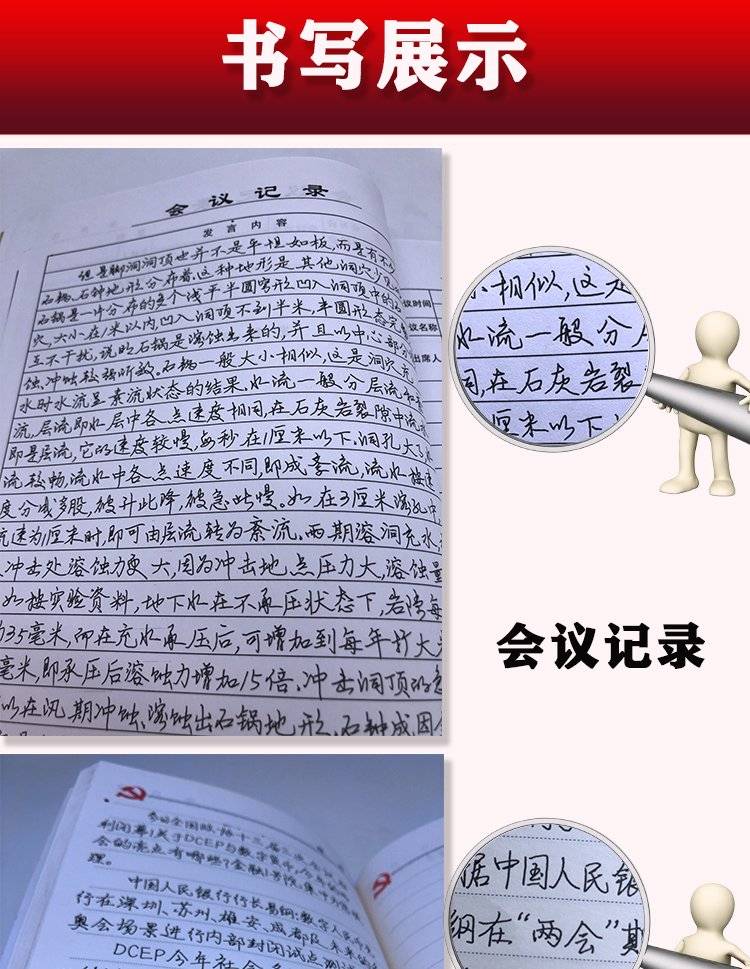 书写展示
会议记录
发言内容
但是脚洞洞顶也并不是平坦如板,而是有不
石锅、石钟地形分布着,这种地形是其他洞穴少见
石锅是一种分布的多个浅平半圆穹形凹入洞顶中的石
穴,大小在1米以内,凹入洞顶不到半米,半圆形态完
互不干扰,说明石锅是溶蚀出来的,并且以中心部分
蚀,冲蚀 石锅一般大小相似,这是洞穴充
水时水流呈紊流状态的结果.水流一般分层流和
流,层流即水层中各点速度相同,在石灰岩裂隙中流
即是层流,它的速度较慢,每秒在1厘米以下,洞孔大
流较畅,流水中各点速度不同,即成紊流,流水按速
度分成多股,彼升此降,彼急此慢。如在3厘米溶孔中,
流速为1厘米时,即可由层流转为紊流.雨期溶洞充水,
冲击处溶蚀力更大,因为冲击地点压力大,溶蚀量
如按实验资料,地下水在不承压状态下,岩隙每
35毫米,而在充水承压后,可增加到每年扩大
毫米,即承压后溶蚀力增加15倍.冲击洞顶的
以在汛期冲蚀、溶蚀出石锅地形.石钟成因
议时间
议名称
出席人
小相似,这是
水流一般分
同,在石灰岩裂
厘米以下
会议记录
利闭幕!关于DCEP与数字货币,今年的
会的亮点有哪些?金融1号院,集中为您梳
理。
中国人民银行行长易纲:数字人民币先
行在深圳、苏州、雄安、成都及未来的冬
奥会场景进行内部封闭试点测试
DCEP今年社会
据中国人民银
纲在“两会”期